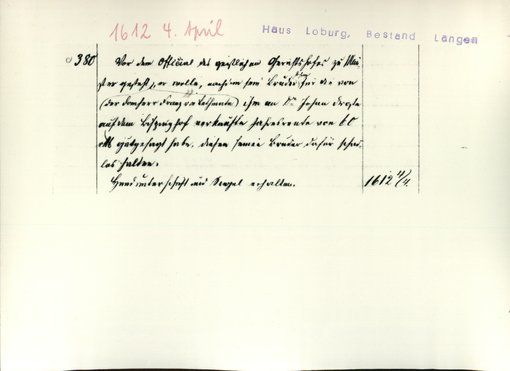 1612 4. April
Haus Loburg, Bestand Langen
380 Vor dem Official des geistlichen Gerichtshofes zu Mün-
ster gesteht, er wolle, nachdem sein Bruder für die von
(der Domherr Franz von) ihm an Dr. Johan Droste
auf dem Bispinghof verkaufte Jahresrente von 60
gutgesagt habe, diesen seinen Bruder dafür schad-
los halten.
Handunterschrift und Siegel erhalten.
1612 4/4.